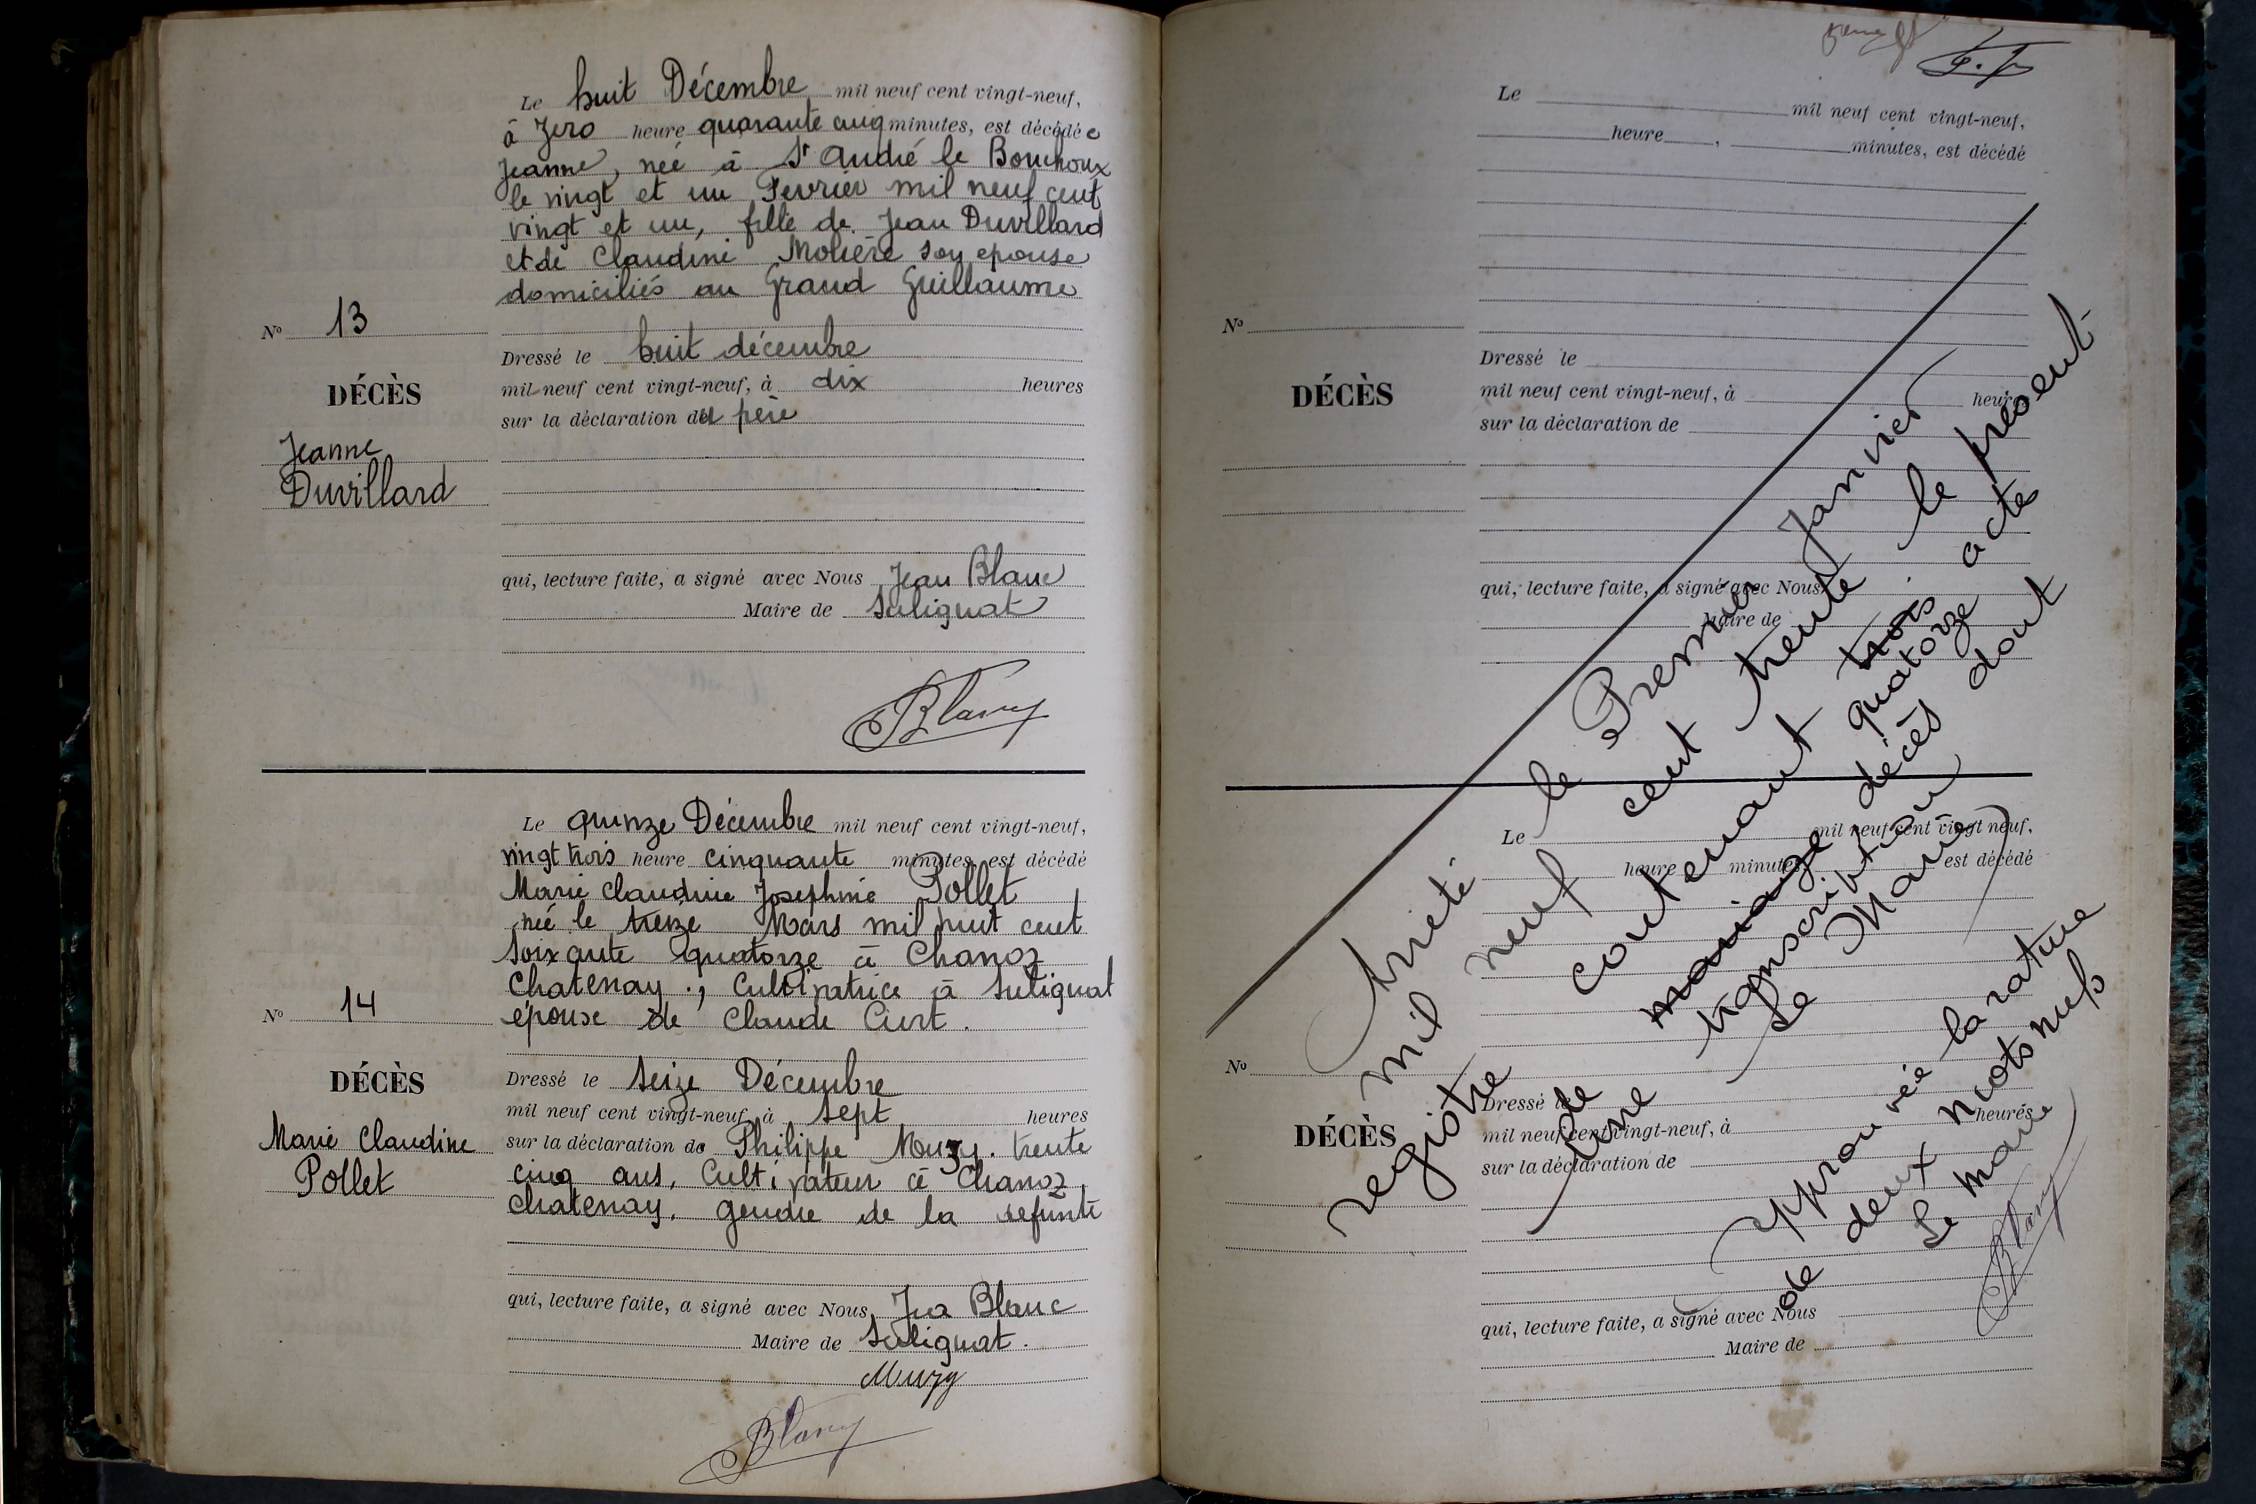 Le huit Décembre mil neuf cent vingt-neuf,
à Zero heure quarante cinq minutes, est décédée
Jeanne, née à St André le Bouchoux
le vingt et un Fevrier mil neuf cent
vingt et un, fille de Jean Duvillard
et de Claudine Molière son epouse
domiciliés au Grand Guillaume
No 13
Dressé le huit décembre
mil neuf cent vingt-neuf, à dix heures
DÉCÈS
sur la déclaration du père
Jeanne
Duvillard
qui, lecture faite, a signé avec Nous Jean Blanc
Maire de Sulignat
Blanc
Le quinze Décembre mil neuf cent vingt-neuf,
vingt trois heure cinquante minutes, est décédé
Marie Claudine Josephine Pollet
née le treize Mars mil huit cent
soixante quatorze à Chanoz
Chatenay, Cultivatrice à Sulignat
épouse de Claude Curt.
No 14
Dressé le seize Décembre
DÉCÈS
mil neuf cent vingt-neuf, à sept heures
Marie Claudine
Pollet
sur la déclaration de Philippe Muzy. trente
cinq ans, Cultivateur à Chanoz
Chatenay, gendre de la défunte
qui, lecture faite, a signé avec Nous, Jean Blanc
Maire de Sulignat.
Muzy
Blanc
Le mil neuf cent vingt-neuf,
heure , minutes, est décédé
No
Dressé le
DÉCÈS
mil neuf cent vingt-neuf, à heures
sur la déclaration de
qui, lecture faite, a signé avec Nous
Maire de
Le mil neuf cent vingt neuf,
heure minutes, est décédé
No
Dressé le
DÉCÈS
mil neuf cent vingt-neuf, à heures
sur la déclaration de
qui, lecture faite, a signé avec Nous
Maire de
Arrêté le Premier Janvier
mil neuf cent trente le présent
registre contenant trois . acte
quatorze
de mariage décès
une transcription dont
Le Maire
approuvée la rature
de deux mots nuls
Le maire
Blanc